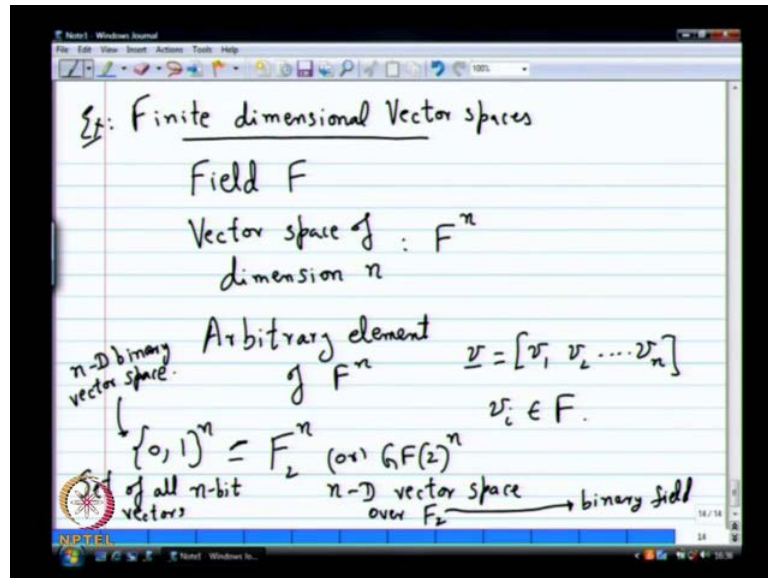 Note1 - Windows Journal
File Edit View Insert Actions Tools Help
100%
Ex: Finite dimensional Vector spaces
Field F
Vector space of : F^n
dimension n
Arbitrary element
of F^n
v = [v₁ v₂ .... vₙ]
vᵢ ∈ F.
n-D binary
vector space.
{0,1}^n = F₂^n (or) GF(2)^n
Set of all n-bit
vectors
n-D vector space
over F₂ → binary field
14 / 14
14
NPTEL
Note1 - Windows Jo...
16:36